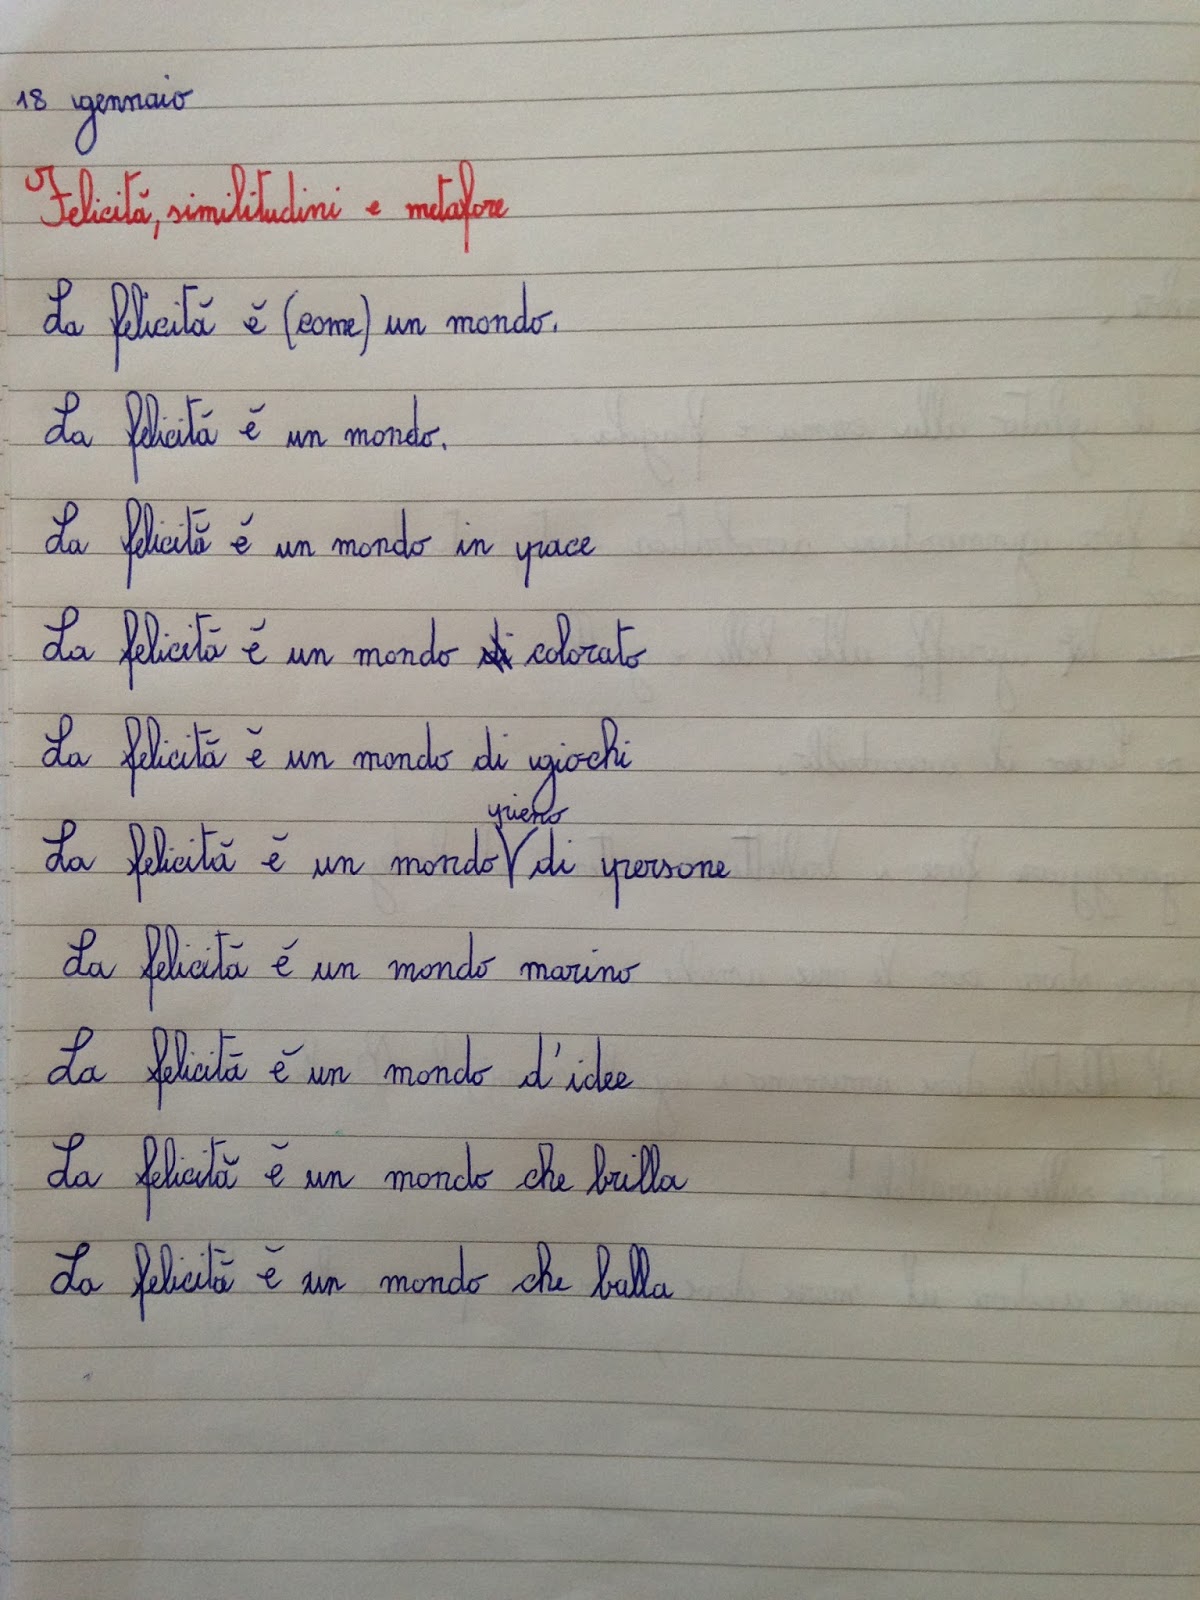 18 gennaio
Felicità, similitudini e metafore
La felicità è (come) un mondo.
La felicità è un mondo.
La felicità è un mondo in pace
La felicità è un mondo di colorato
La felicità è un mondo di giochi
pieno
La felicità è un mondo V di persone
La felicità è un mondo marino
La felicità è un mondo d'idee
La felicità è un mondo che brilla
La felicità è un mondo che balla